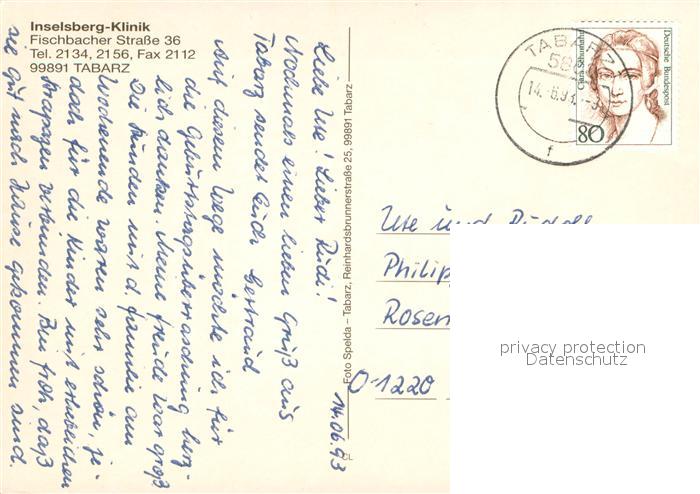 Inselsberg-Klinik
Fischbacher Straße 36
Tel. 2134, 2156, Fax 2112
99891 TABARZ
Liebe Ute! Lieber Rudi!
Nochmals einen lieben Gruß aus
Tabarz sendet Euch Gertraud
Auf diesem Wege möchte ich für
die Geburtstagsüberraschung herz-
lich danken. Meine Freude war groß
Die Stunden mit d. Familie am
Wochenende waren sehr schön, je-
doch für die Kinder mit erheblichen
Strapazen verbunden. Bin froh, daß
sie gut nach Hause gekommen sind.
14.06.93
Foto Spelda – Tabarz, Reinhardsbrunnerstraße 25, 99891 Tabarz
CL
TABARZ
14.-6.93
f
Clara Schumann
Deutsche Bundespost
80
Ute und Rudolf
Philipp
Rosen
O-1220
privacy protection
Datenschutz